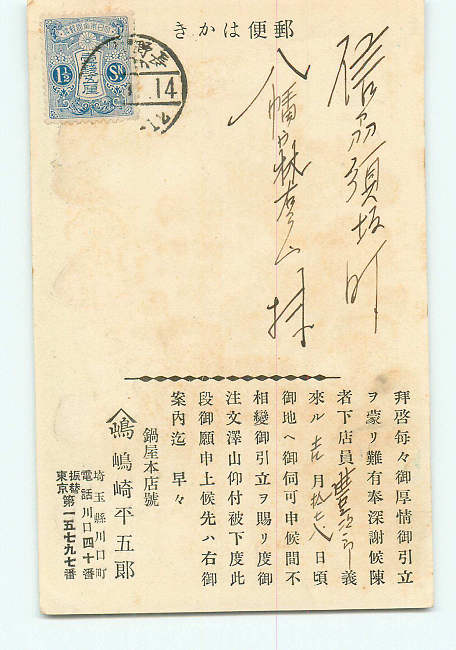 郵便はかき
1½ Sn.
14
信州須坂町
八幡
様
拜啓毎々御厚情御引立
ヲ蒙リ難有奉深謝候陳
者下店員 義
來ル 月 日頃
御地へ御伺可申候間不
相變御引立ヲ賜リ度御
注文澤山仰付被下度此
段御願申上候先ハ右御
案内迄 早々
鍋屋本店號
嶋﨑平五郎
埼玉縣川口町
電話川口四十番
振替東京第一五七九七番